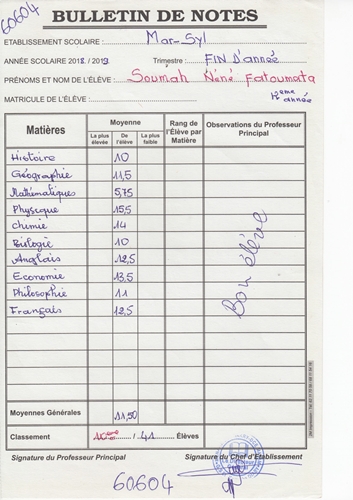 60604
BULLETIN DE NOTES
ETABLISSEMENT SCOLAIRE : Mar-Syl
ANNÉE SCOLAIRE 2018 / 2019 Trimestre : FIN D'année
PRÉNOMS ET NOM DE L'ÉLÈVE : Soumah Néné Fatoumata
MATRICULE DE L'ÉLÈVE : année
Matières Moyenne Rang de l'Élève par Matière Observations du Professeur Principal
La plus élevée De l'élève La plus faible
Histoire 10
Géographie 11,5
Mathématiques 5,75
Physique 15,5
Chimie 14
Biologie 10
Anglais 12,5
Economie 13,5
Philosophie 11
Français 12,5
Bon élève
Moyennes Générales 11,50
Classement 10ème / 41 Élèves
Signature du Professeur Principal Signature du Chef d'Etablissement
60604